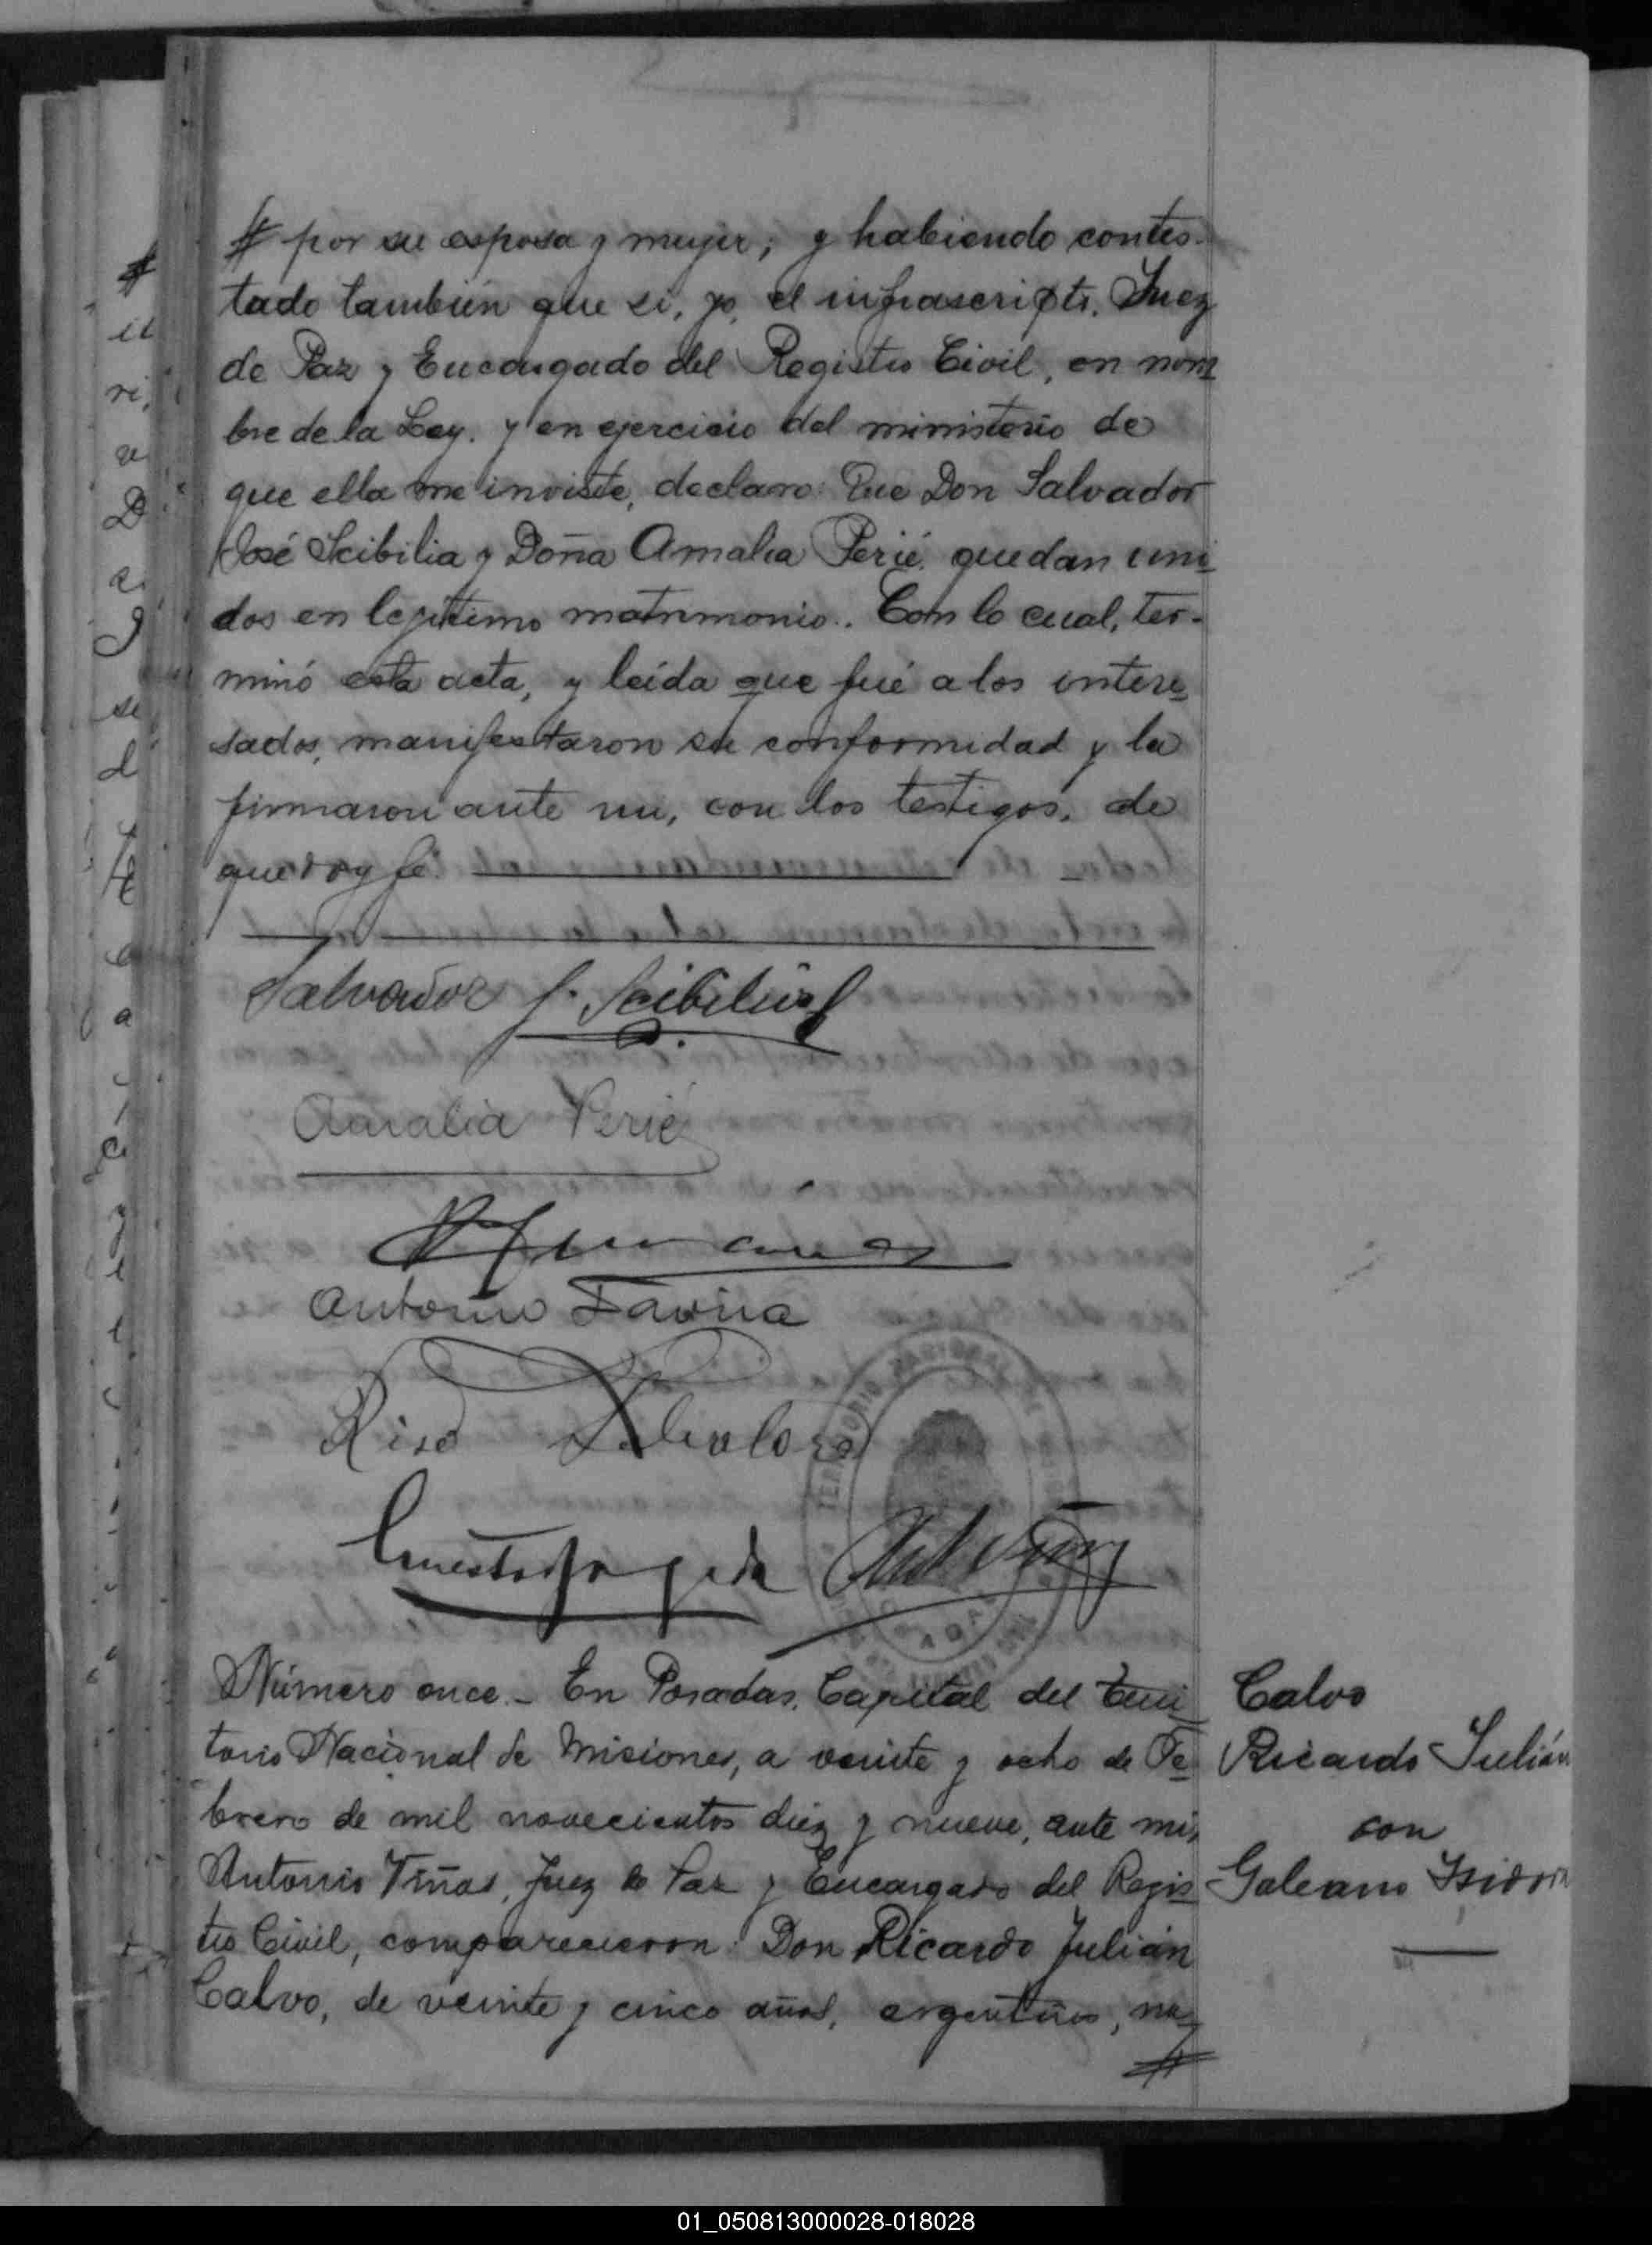 # por su esposa y mujer; y habiendo contes-
tado también que si, yo, el infrascripto, Juez
de Paz y Encargado del Registro Civil, en nom-
bre de la Ley, y en ejercicio del ministerio de
que ella me inviste, declaro: Que Don Salvador
José Scibilia y Doña Amalia Perié, quedan uni-
dos en legítimo matrimonio. Con lo cual, ter-
minó esta acta, y leída que fué a los intere-
sados, manifestaron su conformidad y la
firmaron ante mi, con los testigos, de
que doy fé.
Salvador J. Scibilia
Amalia Perié
Antonio
Riso
TERRITORIO NACIONAL DE
Número once.- En Posadas, Capital del Terri-
torio Nacional de Misiones, a veinte y ocho de Fe-
brero de mil novecientos diez y nueve, ante mi,
Antonio Viñas, Juez de Paz y Encargado del Regis-
tro Civil, comparecieron: Don Ricardo Julián
Calvo, de veinte y cinco años, argentino, na-
#
Calvo
Ricardo Julián
con
Galeano Isidora
01_050813000028-018028